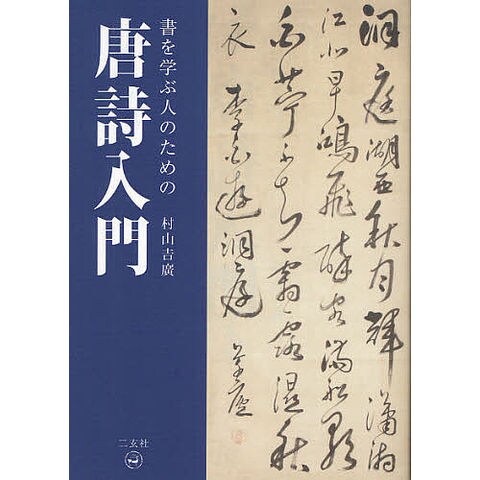 書を学ぶ人のための
唐詩入門
村山吉廣
二玄社
洞庭湖西秋月輝瀟湘
江北早鴻飛醉客滿船歌
白苧不知霜露濕秋
衣 李白遊洞庭
草廬